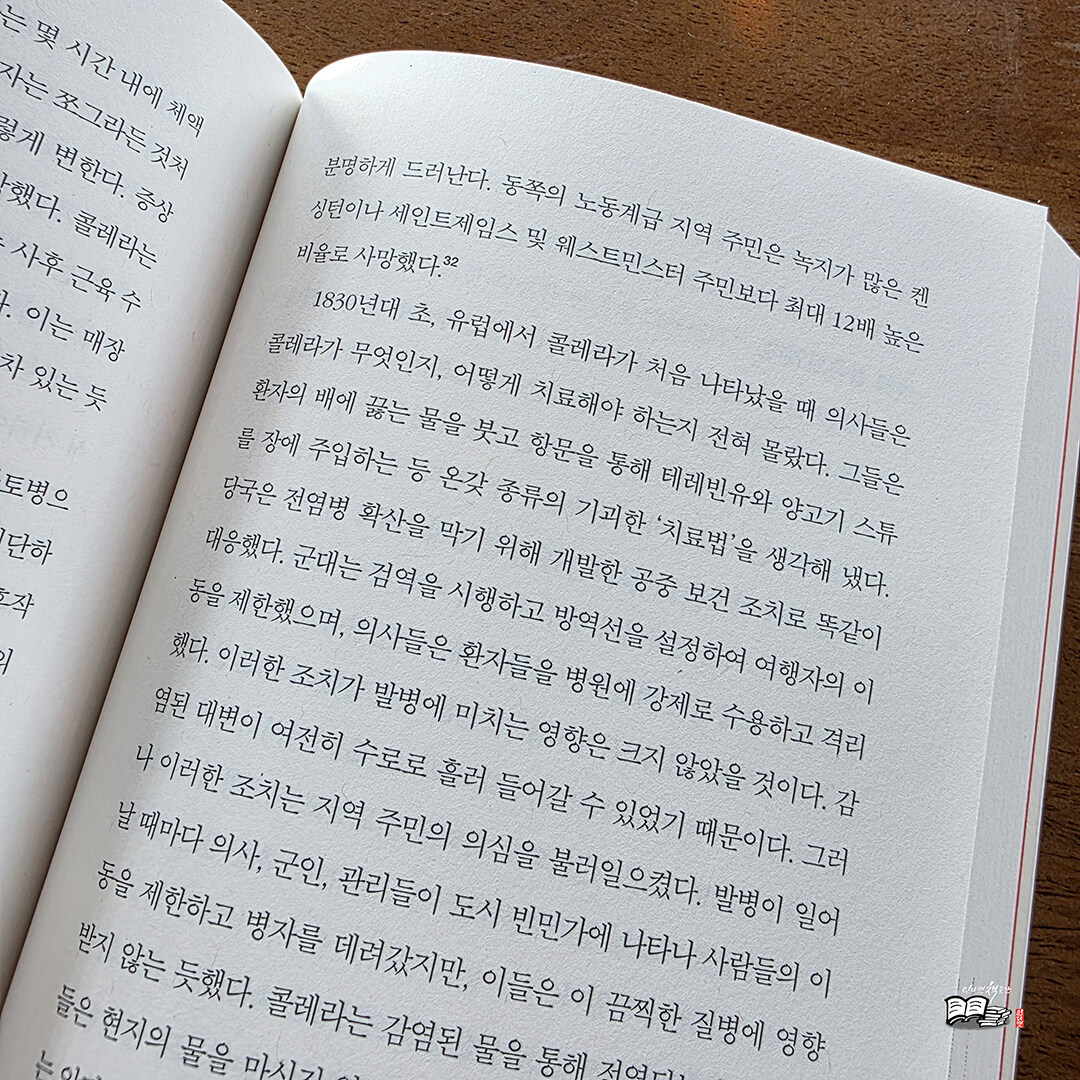 는 몇 시간 내에 체액
자는 쪼그라든 것처
렇게 변한다. 증상
했다. 콜레라는
사후 근육 수
다. 이는 매장
차 있는 듯
토병으
단하
호작
의
분명하게 드러난다. 동쪽의 노동계급 지역 주민은 녹지가 많은 켄
싱턴이나 세인트제임스 및 웨스트민스터 주민보다 최대 12배 높은
비율로 사망했다.32
1830년대 초, 유럽에서 콜레라가 처음 나타났을 때 의사들은
콜레라가 무엇인지, 어떻게 치료해야 하는지 전혀 몰랐다. 그들은
환자의 배에 끓는 물을 붓고 항문을 통해 테레빈유와 양고기 스튜
를 장에 주입하는 등 온갖 종류의 기괴한 ‘치료법’을 생각해 냈다.
당국은 전염병 확산을 막기 위해 개발한 공중 보건 조치로 똑같이
대응했다. 군대는 검역을 시행하고 방역선을 설정하여 여행자의 이
동을 제한했으며, 의사들은 환자들을 병원에 강제로 수용하고 격리
했다. 이러한 조치가 발병에 미치는 영향은 크지 않았을 것이다. 감
염된 대변이 여전히 수로로 흘러 들어갈 수 있었기 때문이다. 그러
나 이러한 조치는 지역 주민의 의심을 불러일으켰다. 발병이 일어
날 때마다 의사, 군인, 관리들이 도시 빈민가에 나타나 사람들의 이
동을 제한하고 병자를 데려갔지만, 이들은 이 끔찍한 질병에 영향
받지 않는 듯했다. 콜레라는 감염된 물을 통해 전염되는
들은 현지의 물을 마시지
는